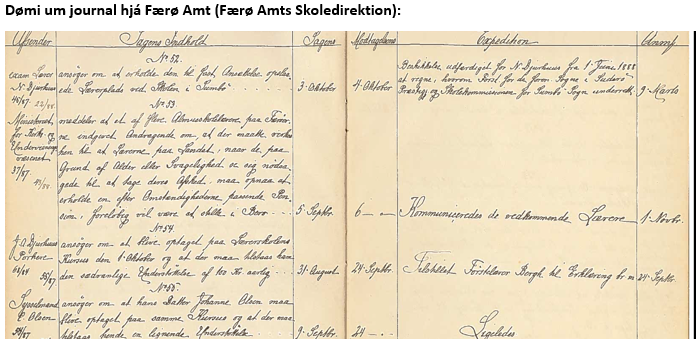 Dømi um journal hjá Færø Amt (Færø Amts Skoledirektion):
Afsender Sagens Indhold Sagens Modtagelsens Expedition Anmf.
No 52.
exam. Lærer ansøger om at erholde den til fast Ansættelse opslaa-
N. Djurhuus ede Lærerplads ved Skolen i Sumbø 3 Oktober 4 Oktober
Beskikkelse udfærdiget for N. Djurhuus fra 1 Juni 1888
at regne, hvorom Først for de forenede Sogne i Suderø
Præstegj. og Skolekommissionen for Sumbø Sogn underrettes 9 Marts
No 53.
Ministeriet meddeler at et af flere Almueskolelærere paa Færø-
for Kirke og erne indgivet Andragende om, at der maatte virkes
Undervisnings hen til at Lærerne paa Landet, naar de paa
væsenet Grund af Alder eller Svagelighed se sig nødsa-
37/87. gede til at tage deres Afsked, maa opnaa at
erholde en efter Omstændighederne passende Pen-
sion, foreløbig vil være at stille i Bero 5 Septbr. 6 — Kommuniceredes de vedkommende Lærere 1 Novbr.
No 54.
J. A. Djurhuus ansøger om at blive optaget paa Lærerskolens
Porkere Kursus den 1 Oktober og at der maa tilstaaes ham
den sædvanlige Understøttelse af 100 Kr. aarlig 31 August 24 Septbr. Tilstillet Førstelærer Bærgh til Erklæring 24 Septbr.
No 55.
Sysselmand ansøger om at hans Datter Johanne Olsen maa
E. Olsen blive optaget paa samme Kursus og at der maa
54/87 tilstaaes hende en lignende Understøttelse 9 Septbr. 24 — Ligeledes